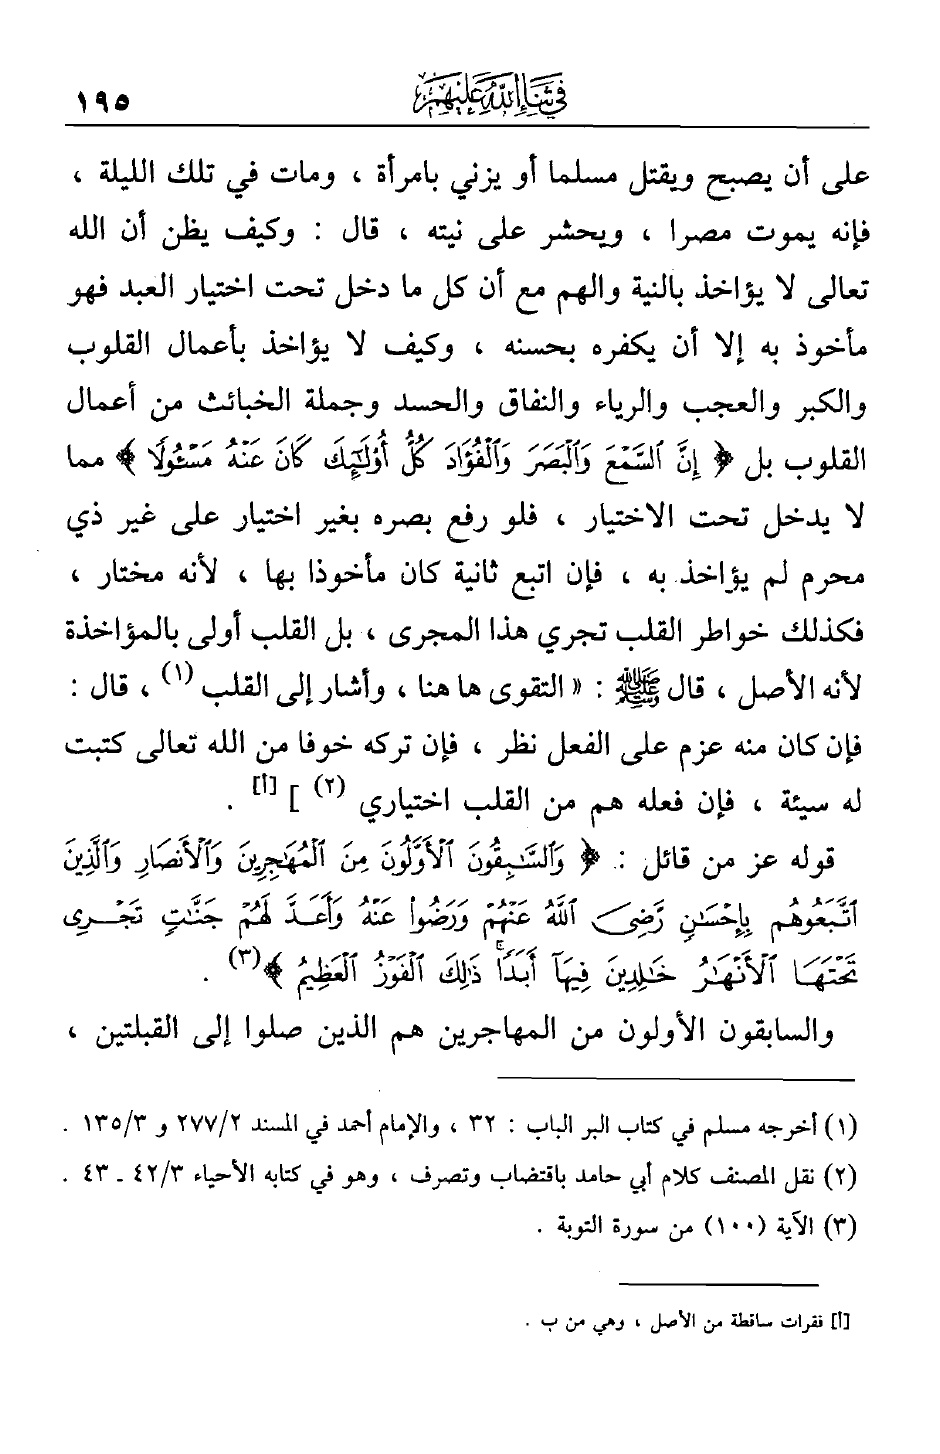 في ثناء الله عليهم ١٩٥
على أن يصبح ويقتل مسلما أو يزني بامرأة ، ومات في تلك الليلة ،
فإنه يموت مصرا ، ويحشر على نيته ، قال : وكيف يظن أن الله
تعالى لا يؤاخذ بالنية والهم مع أن كل ما دخل تحت اختيار العبد فهو
مأخوذ به إلا أن يكفره بحسنه ، وكيف لا يؤاخذ بأعمال القلوب
والكبر والعجب والرياء والنفاق والحسد وجملة الخبائث من أعمال
القلوب بل ﴿ إِنَّ ٱلسَّمْعَ وَٱلْبَصَرَ وَٱلْفُؤَادَ كُلُّ أُوْلَٰٓئِكَ كَانَ عَنْهُ مَسْـُٔولًا ﴾ مما
لا يدخل تحت الاختيار ، فلو رفع بصره بغير اختيار على غير ذي
محرم لم يؤاخذ به ، فإن اتبع ثانية كان مأخوذا بها ، لأنه مختار ،
فكذلك خواطر القلب تجري هذا المجرى ، بل القلب أولى بالمؤاخذة
لأنه الأصل ، قال ﷺ : « التقوى ها هنا ، وأشار إلى القلب (١) ، قال :
فإن كان منه عزم على الفعل نظر ، فإن تركه خوفا من الله تعالى كتبت
له سيئة ، فإن فعله هم من القلب اختياري (٢) ] [أ] .
قوله عز من قائل : ﴿ وَٱلسَّٰبِقُونَ ٱلْأَوَّلُونَ مِنَ ٱلْمُهَٰجِرِينَ وَٱلْأَنصَارِ وَٱلَّذِينَ
ٱتَّبَعُوهُم بِإِحْسَٰنٍ رَّضِىَ ٱللَّهُ عَنْهُمْ وَرَضُوا۟ عَنْهُ وَأَعَدَّ لَهُمْ جَنَّٰتٍ تَجْرِى
تَحْتَهَا ٱلْأَنْهَٰرُ خَٰلِدِينَ فِيهَآ أَبَدًا ۚ ذَٰلِكَ ٱلْفَوْزُ ٱلْعَظِيمُ ﴾(٣) .
والسابقون الأولون من المهاجرين هم الذين صلوا إلى القبلتين ،
(١) أخرجه مسلم في كتاب البر الباب : ٣٢ ، والإمام أحمد في المسند ٢٧٧/٢ و ١٣٥/٣ .
(٢) نقل المصنف كلام أبي حامد باقتضاب وتصرف ، وهو في كتابه الأحياء ٤٢/٣ ـ ٤٣ .
(٣) الآية (١٠٠) من سورة التوبة .
[أ] فقرات ساقطة من الأصل ، وهي من ب .